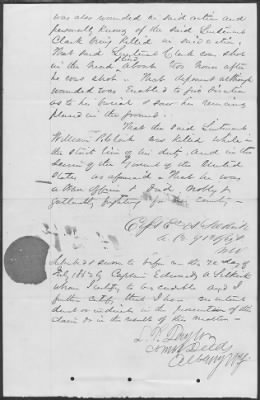 was also wounded in said action and
personally knows of the said Lieutenant
Clark being killed in said action,
That said Lieutenant Clark was shot
in the head & died about two hours after
he was shot. That deponent although
wounded was enabled to give direction
as to his burial & saw his remains
placed in the ground.
That the said Lieutenant
William P. Clark was killed while in
the strict line of duty and in the
service of the Government of the United
States as aforesaid - That he was
a brave officer & died nobly &
gallantly fighting for his country -
Capt
Subscribed & sworn to before me this 22 day of
July 1862 by Captain Edward A. Selkirk
whom I certify to be credible and I
further certify that I have no interest
direct or indirect in the prosecution of this
claim or in the result of the matter -
Com of Deeds
Albany NY